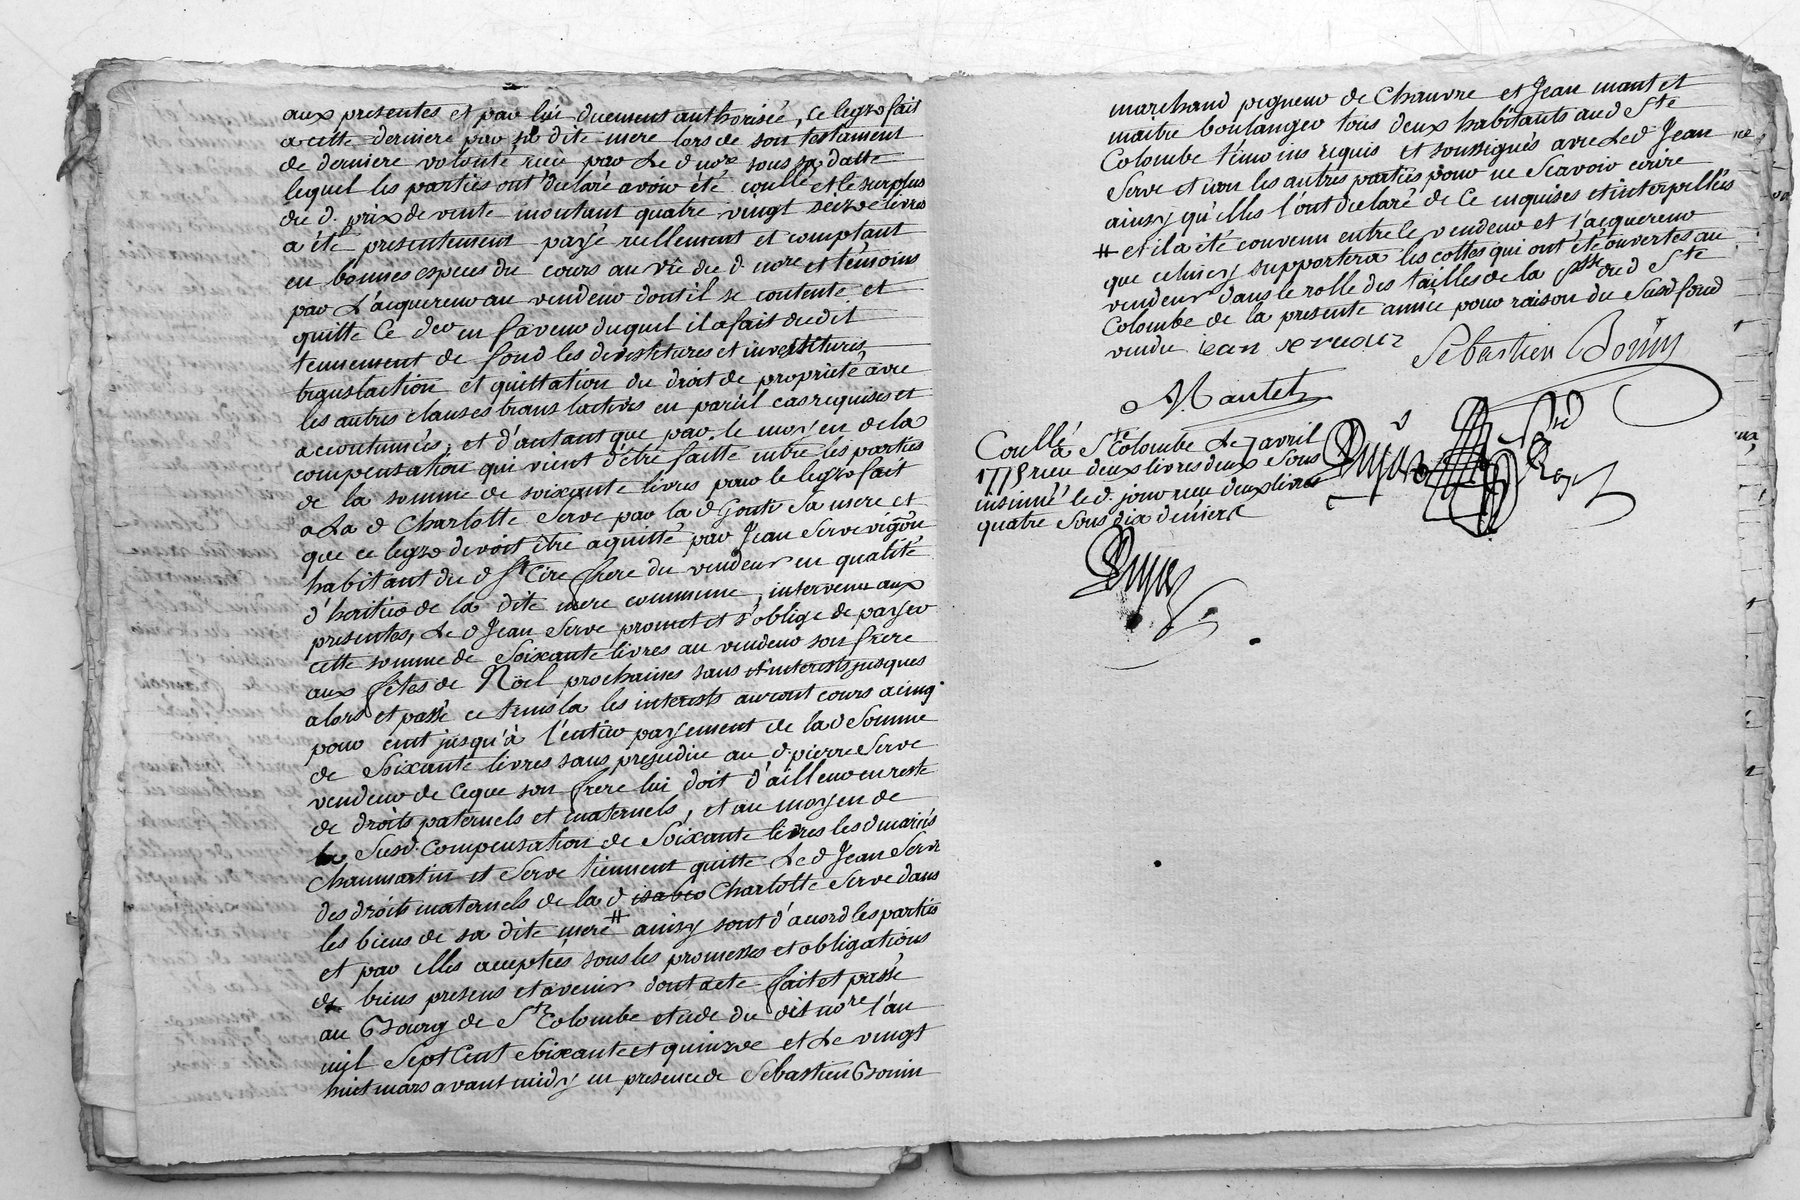 aux presentes et par lui duement authorisée, ce legz fait
a cette derniere par sa dite mere lors de son testament
de derniere volonté reçu par Le d nore sous sa datte
lequel les parties ont declaré avoir été coullé et le surplus
du d. prix de vente montant quatre vingt seize livres
a été presentement payé reellement et comptant
en bonnes especes du cours au vû du d nore et témoins
par L'acquereur au vendeur dont il se contente et
quitte Le der en faveur duquel il a fait dudit
tennement de fond les devestitures et investitures,
translaction et quittation du droit de propriété avec
les autres clauses translatives en pareil cas requises et
accoutumées, et d'autant que par le moyen de la
compensation qui vient d'être faitte entre les parties
de la somme de soixante livres pour le legz fait
a La d Charlotte Serve par la d Gouté Sa mere et
que ce legz devoit être aquitté par Jean Serve vigñon
habitant du d St Cire frere du vendeur en qualité
d'heritier de la dite mere commune, intervenu aux
presentes, Le d Jean Serve promet et s'oblige de payer
cette somme de Soixante livres au vendeur son frere
aux fêtes de Nöel prochaines sans interests jusques
alors et passé ce tems la les interests auront cours a cinq
pour cent jusqu'à l'entier payement de la d Somme
de Soixante livres sans prejudice au d. pierre Serve
vendeur de ce que son frere lui doit d'ailleur en reste
de droits paternels et maternels, et au moyen de
la Susd. compensation de Soixante livres les d mariés
Chaumartin et Serve tiennent quitte Le d Jean Serve
des droits maternels de la d Charlotte Serve dans
les biens de sa dite mere # ainsy sont d'acord les parties
et par elles acceptées sous les promesses et obligations
de biens presens et avenir dont acte fait et passé
au Bourg de Ste Colombe etude du dit nore l'an
mil Sept Cent Soixante et quinze et Le vingt
huit mars avant midy en presence de Sébastien Bonin
marchand pigneur de Chanvre et Jean mantet
maitre boulanger tous deux habitants au d Ste
Colombe témoins requis et soussignés avec Le d Jean
Serve et non les autres parties pour ne Scavoir ecrire
ainsy qu'elles l'ont declaré de Ce enquises et interpellées
# et il a été convenu entre le vendeur et l'acquereur
que celuicy supportera les cottes qui ont été ouvertes au
vendeur dans le rolle des tailles de la psse dud Ste
Colombe de la presente année pour raison du Susd fond
vendu jean serve
Sébastien Bonin
Mantet
Coullé a Ste Colombe Le 7 avril
1775 reçu deux livres deux Sous
insinué le d. jour reçu deux livres
quatre Sous dix deniers